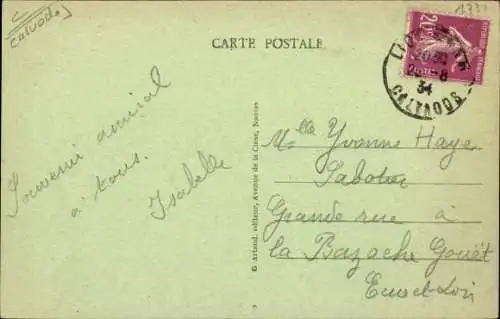 Calvados
CARTE POSTALE
20c
34
CALVADOS
Souvenir amical
à tous.
Isabelle
G Artaud, éditeur, Avenue de la Close, Nantes
Mlle Yvonne Haye
Sabotier
Grande rue à
la Bazoche Gouët
Eure et Loir